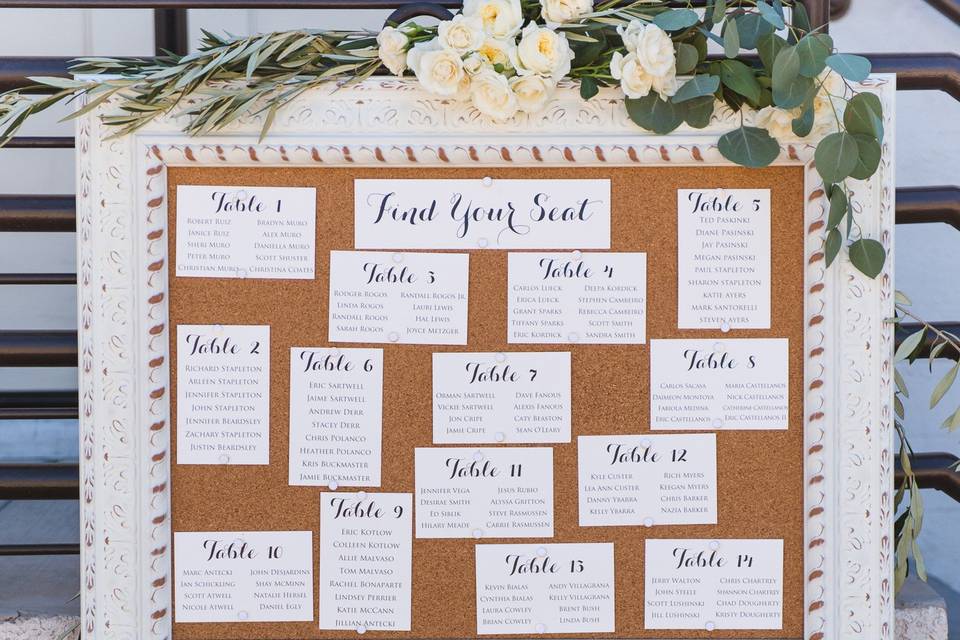 Find Your Seat
Table 1
Robert Ruiz
Janice Ruiz
Sheri Muro
Peter Muro
Christian Muro
Bradyn Muro
Alex Muro
Daniella Muro
Scott Shuster
Christina Coates
Table 3
Rodger Rogos
Linda Rogos
Randall Rogos
Sarah Rogos
Randall Rogos Jr.
Lauri Lewis
Hal Lewis
Joyce Metzger
Table 4
Carlos Lueck
Erica Lueck
Grant Sparks
Tiffany Sparks
Eric Kordick
Deepa Kordick
Stephen Cambeiro
Rebecca Cambeiro
Scott Smith
Sandra Smith
Table 5
Ted Paskinki
Diane Pasinski
Jay Pasinski
Megan Pasinski
Paul Stapleton
Sharon Stapleton
Katie Ayers
Mark Santorelli
Steven Ayers
Table 2
Richard Stapleton
Arleen Stapleton
Jennifer Stapleton
John Stapleton
Jennifer Beardsley
Zachary Stapleton
Justin Beardsley
Table 6
Eric Sartwell
Jaime Sartwell
Andrew Derr
Stacey Derr
Chris Polanco
Heather Polanco
Kris Buckmaster
Jamie Buckmaster
Table 7
Orman Sartwell
Vickie Sartwell
Jon Cripe
Jamie Cripe
Dave Fanous
Alexis Fanous
Caty Beaston
Sean O'Leary
Table 8
Carlos Sacasa
Daimeon Montoya
Fabiola Medina
Eric Castellanos
Maria Castellanos
Nick Castellanos
Catherine Castellanos
Eric Castellanos II
Table 11
Jennifer Vega
Desirae Smith
Ed Siblik
Hilary Meade
Jesus Rubio
Alyssa Gritton
Steve Rasmussen
Carrie Rasmussen
Table 12
Kyle Custer
Lea Ann Custer
Danny Ybarra
Kelly Ybarra
Rich Myers
Keegan Myers
Chris Barker
Nazia Barker
Table 9
Eric Kotlow
Colleen Kotlow
Allie Malvaso
Tom Malvaso
Rachel Bonaparte
Lindsey Perrier
Katie McCann
Jillian Antecki
Table 10
Marc Antecki
Jan Schickling
Scott Atwell
Nicole Atwell
John Desjardins
Shay McMinn
Natalie Hersel
Daniel Egly
Table 13
Kevin Bialas
Cynthia Bialas
Laura Cowley
Brian Cowley
Andy Villagrana
Kelly Villagrana
Brent Bush
Linda Bush
Table 14
Jerry Walton
John Steele
Scott Lushinski
Jill Lushinski
Chris Chartrey
Shannon Chartrey
Chad Dougherty
Kristy Dougherty